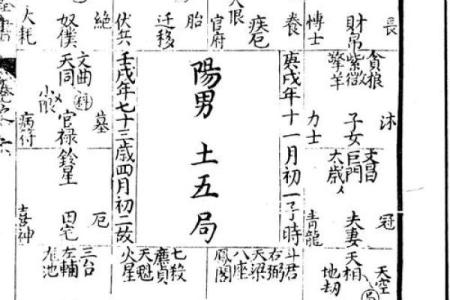 長
財帛
博士
養
疾厄
官府
胎
迁移
伏兵
絕
奴僕
大耗
貪狼
紫微
擎羊
沐
子女
力士
文昌
巨門
太歲
冠
夫妻
青龍
天相
天空
地劫
庚戌年十一月初一子時
陽男 土五局
壬戌年七十三歲四月初二故
文曲
科
天同
小限
墓
官禄
病符
鈴星
厄
田宅
喜神
斗君
右弼
天梁
八座
鳳閣
七殺
廉貞
天魁
火星
三台
左輔